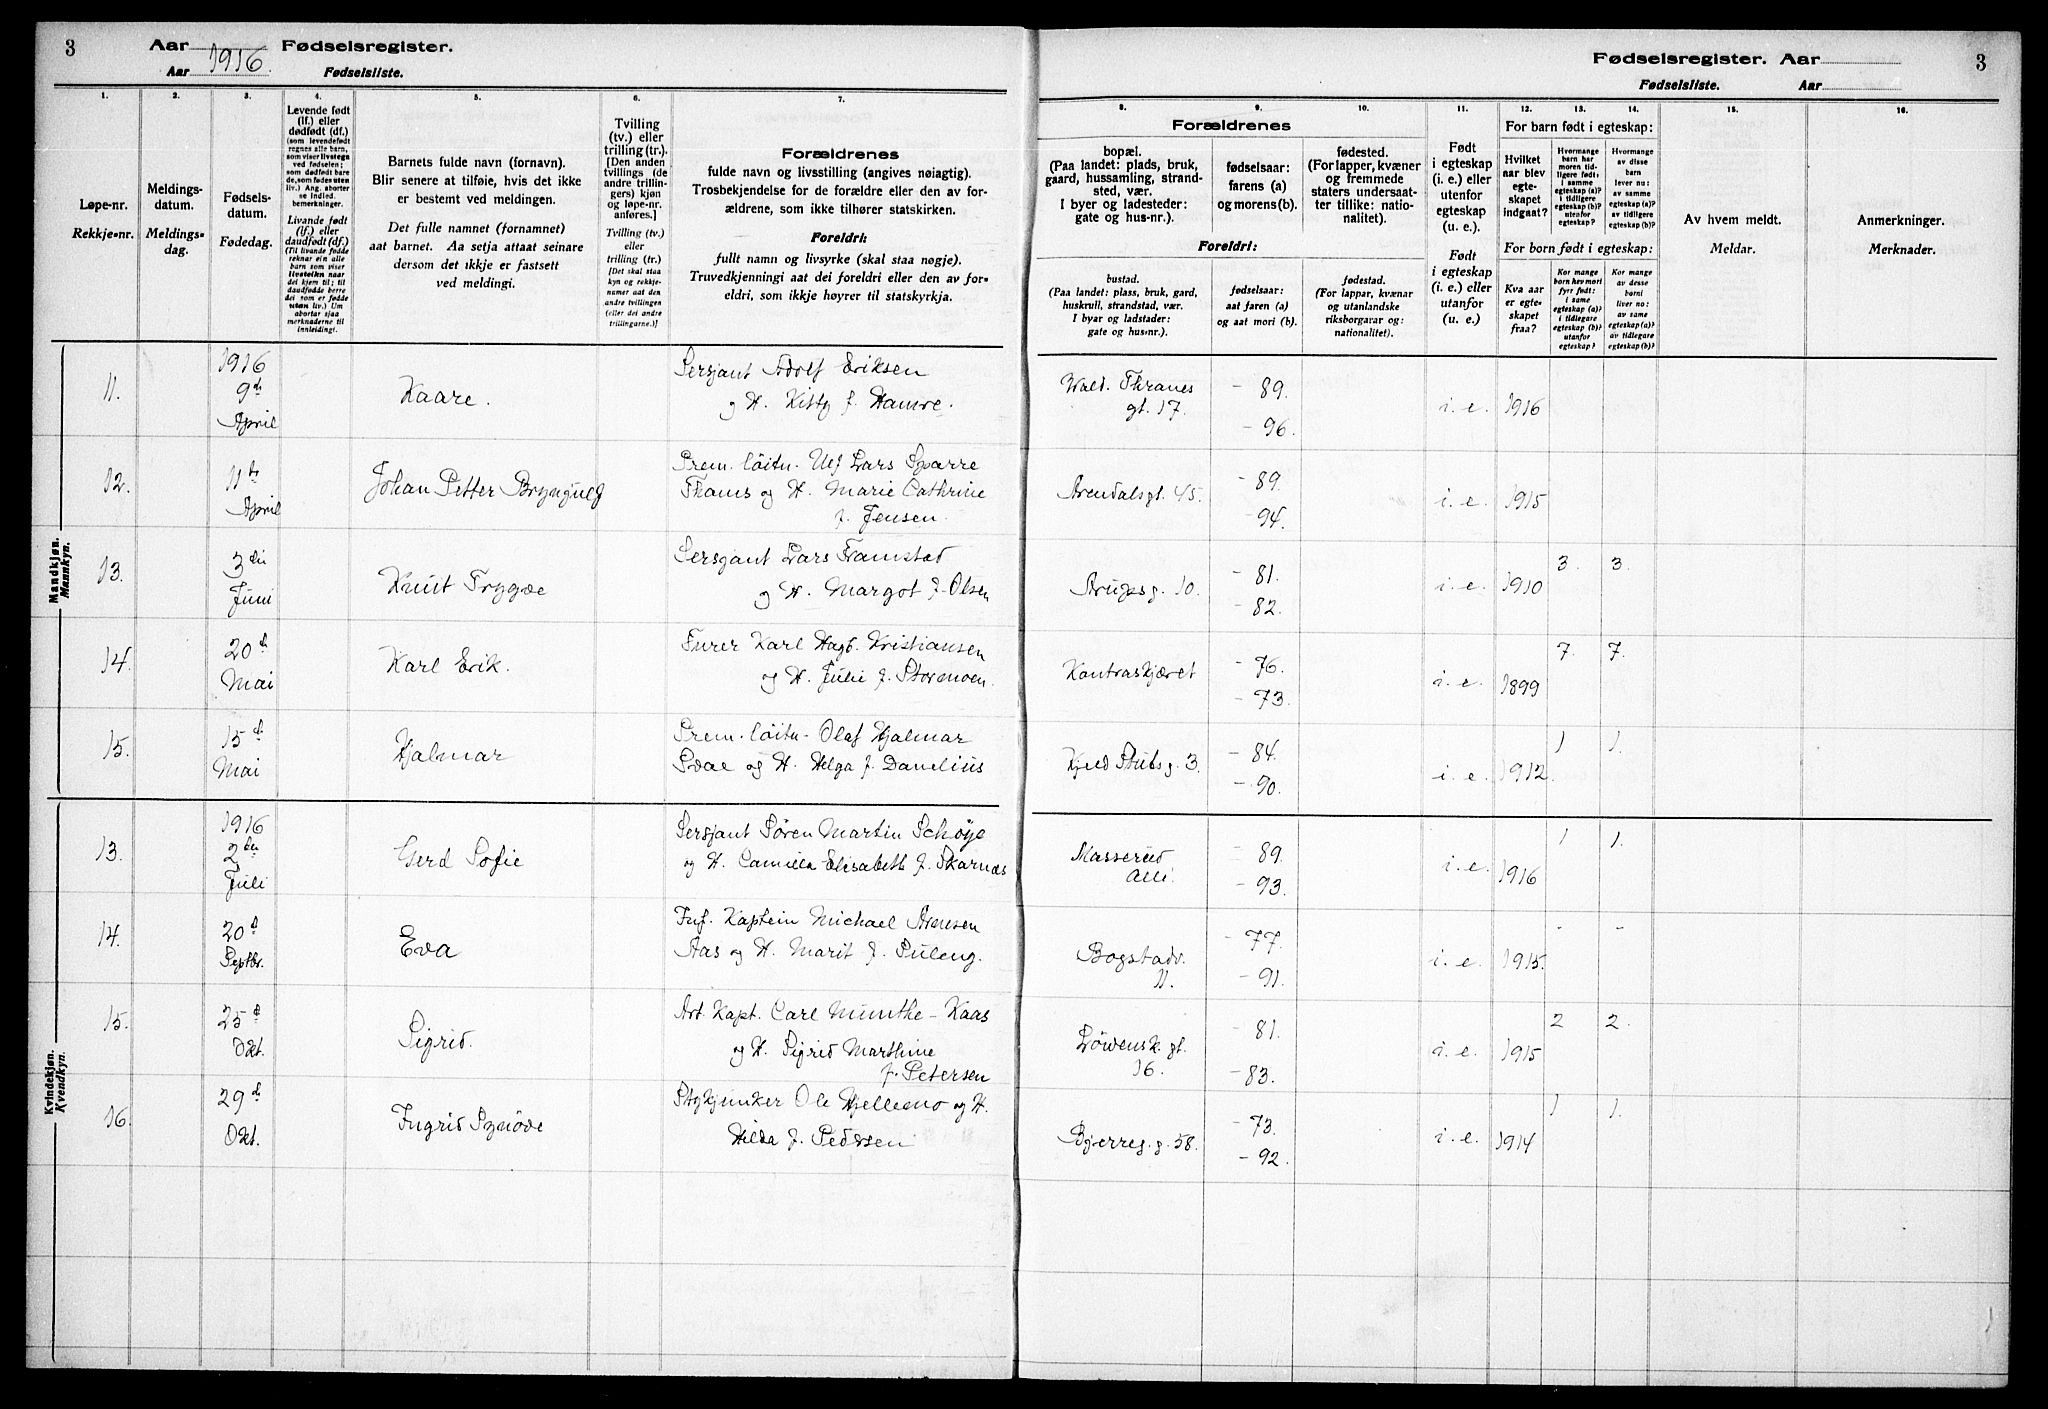 3 Aar 1916 Fødselsregister.
Aar Fødselsliste.
Fødselsregister. Aar 3
Fødselsliste. Aar
1. 2. 3. 4. 5. 6. 7.
8. 9. 10. 11. 12. 13. 14. 15. 16.
Løpe-nr.
Rekkje-nr.
Meldings-
datum.
Meldings-
dag.
Fødsels-
datum.
Fødedag.
Levende født
(lf.) eller
dødfødt (df.)
(som levendefødt
regnes alle barn,
som viser livstegn
ved fødselen;
som dødfødt bare
de, som fødes uten
liv.) Ang. aborter
se indled.
bemerkninger.
Livande født
(lf.) eller
daudfødt (df.)
(Til livande fødde
reknar ein alle
barn som viser
livsteikn naar
dei kjem til; til
daudfødde berre
dei som er fødde
utan liv.) Um
abortar sjaa
merknaderne til
innleiding.
Barnets fulde navn (fornavn).
Blir senere at tilføie, hvis det ikke
er bestemt ved meldingen.
Det fulle namnet (fornamnet)
aat barnet. Aa setja attaat seinare
dersom det ikkje er fastsett
ved meldingi.
Tvilling
(tv.) eller
trilling (tr.).
[Den anden
tvillings (de
andre trillin-
gers) kjøn
og løpe-nr.
anføres.]
Tvilling (tv.)
eller
trilling (tr.)
[Det skal staa
kyn og rekkje-
numer aat den
andre tvillingen
(eller dei andre
trillingarne.)]
Forældrenes
fulde navn og livsstilling (angives nøiagtig).
Trosbekjendelse for de forældre eller den av for-
ældrene, som ikke tilhører statskirken.
Foreldri:
fullt namn og livsyrke (skal staa nøgje).
Truvedkjenningi aat dei foreldri eller den av for-
eldri, som ikkje høyrer til statskyrkja.
Forældrenes
bopæl.
(Paa landet: plads, bruk,
gaard, hussamling, strand-
sted, vær.
I byer og ladesteder:
gate og hus-nr.).
fødselsaar:
farens (a)
og morens (b).
fødested.
(For lapper, kvæner
og fremmede
staters undersaat-
ter tillike: natio-
nalitet).
Foreldri:
bustad.
(Paa landet: plass, bruk, gard,
huskrull, strandstad, vær.
I byar og ladstader:
gate og hus-nr.).
fødselsaar:
aat faren (a)
og aat mori (b).
fødestad.
(For lappar, kvænar
og utanlandske
riksborgarar og:
nationalitet).
Født
i egteskap
(i. e.) eller
utenfor
egteskap
(u. e.).
Født
i egteskap
(i. e.) eller
utanfor
(u. e.)
For barn født i egteskap:
Hvilket
aar blev
egte-
skapet
indgaat?
Hvormange
barn har
moren tid-
ligere født:
i samme
egteskap (a)?
i tidligere
egteskap (b)?
utenfor
egteskap?
Hvormange
av disse
barn
lever nu:
av samme
egteskap (a)?
av tidligere
egteskap (b)?
For born født i egteskap:
Kva aar
er egte-
skapet
fraa?
Kor mange
born hev mori
fyrr født:
i same
egteskap (a)?
i tidlegare
egteskap (b)?
utanfor
egteskap?
Kor mange
av desse
borni
liver no:
av same
egteskap (a)?
av tidlegare
egteskap (b)?
Av hvem meldt.
Meldar.
Anmerkninger.
Merknader.
Mandkjøn.
Mannkyn.
11. 1916 9de April Kaare. Sersjant Adolf Eriksen
og H. Kitty f. Hamre. Wald. Thranes gt. 17. - 89. - 96. i. e. 1916
12. 11te April Johan Petter Bryngulf Prem. løitn. Ulf Lars Sparre
Thams og H. Marie Cathrine
f. Jensen. Arendalsgt. 45. - 89. - 94. i. e. 1915
13. 3die Juni Knut Trygve Sersjant Lars Framstad
og H. Margot f. Olsen Arupsg. 10. - 81. - 82. i. e. 1910 3. 3.
14. 20d Mai Karl Erik. Furer Karl Hagb. Kristiansen
og H. Julie f. Stormoen. Kontraskjæret - 76. - 73. i. e. 1899 7. 7.
15. 15d Mai Hjalmar Prem. løitn. Olaf Hjalmar
og H. Helga f. Danelius Kjeld Stubsg. 3. - 84. - 90. i. e. 1912. 1 1.
Kvindekjøn.
Kvendkyn.
13. 1916 2den Juli Gerd Sofie Sersjant Søren Martin Schøye
og H. Camilla Elisabeth f. Skarnæs Masserud Allé. - 89. - 93. i. e. 1916 1 1.
14. 20d Septbr. Eva Inf. Kaptein Michael Arnesen
Aas og H. Marit f. Puleng. Bogstadv. 11. - 77. - 91. i. e. 1915. - -
15. 25d Okt. Sigrid. Art. Kapt. Carl Munthe-Kaas
og H. Sigrid Marthine
f. Petersen Løvensk. gt. 16. - 81. - 83. i. e. 1915 2 2.
16. 29d Okt. Ingrid Synöve Stykjunker Ole Hjellemo og H.
Hilda f. Pedersen Bjerreg. g. 58. - 73. - 92. i. e. 1914 1 1.